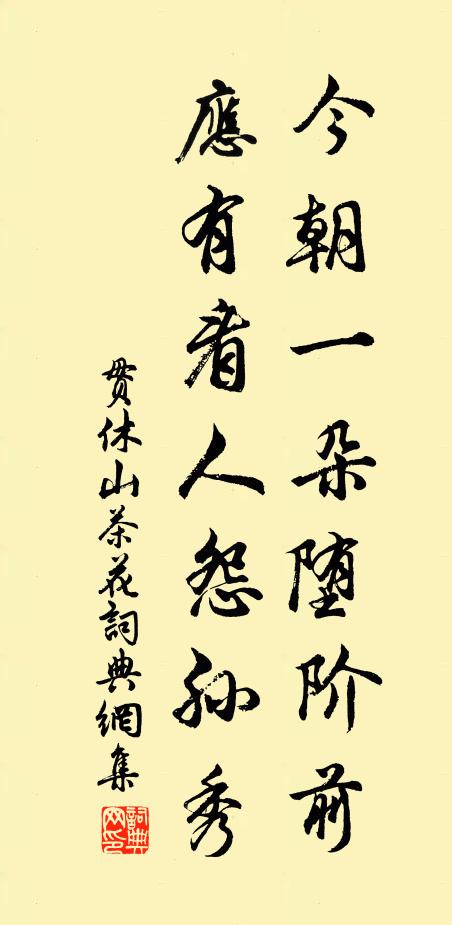 今朝一朵堕阶前
應有看人怨孙秀
贯休山茶花詞典網集
詞典網印